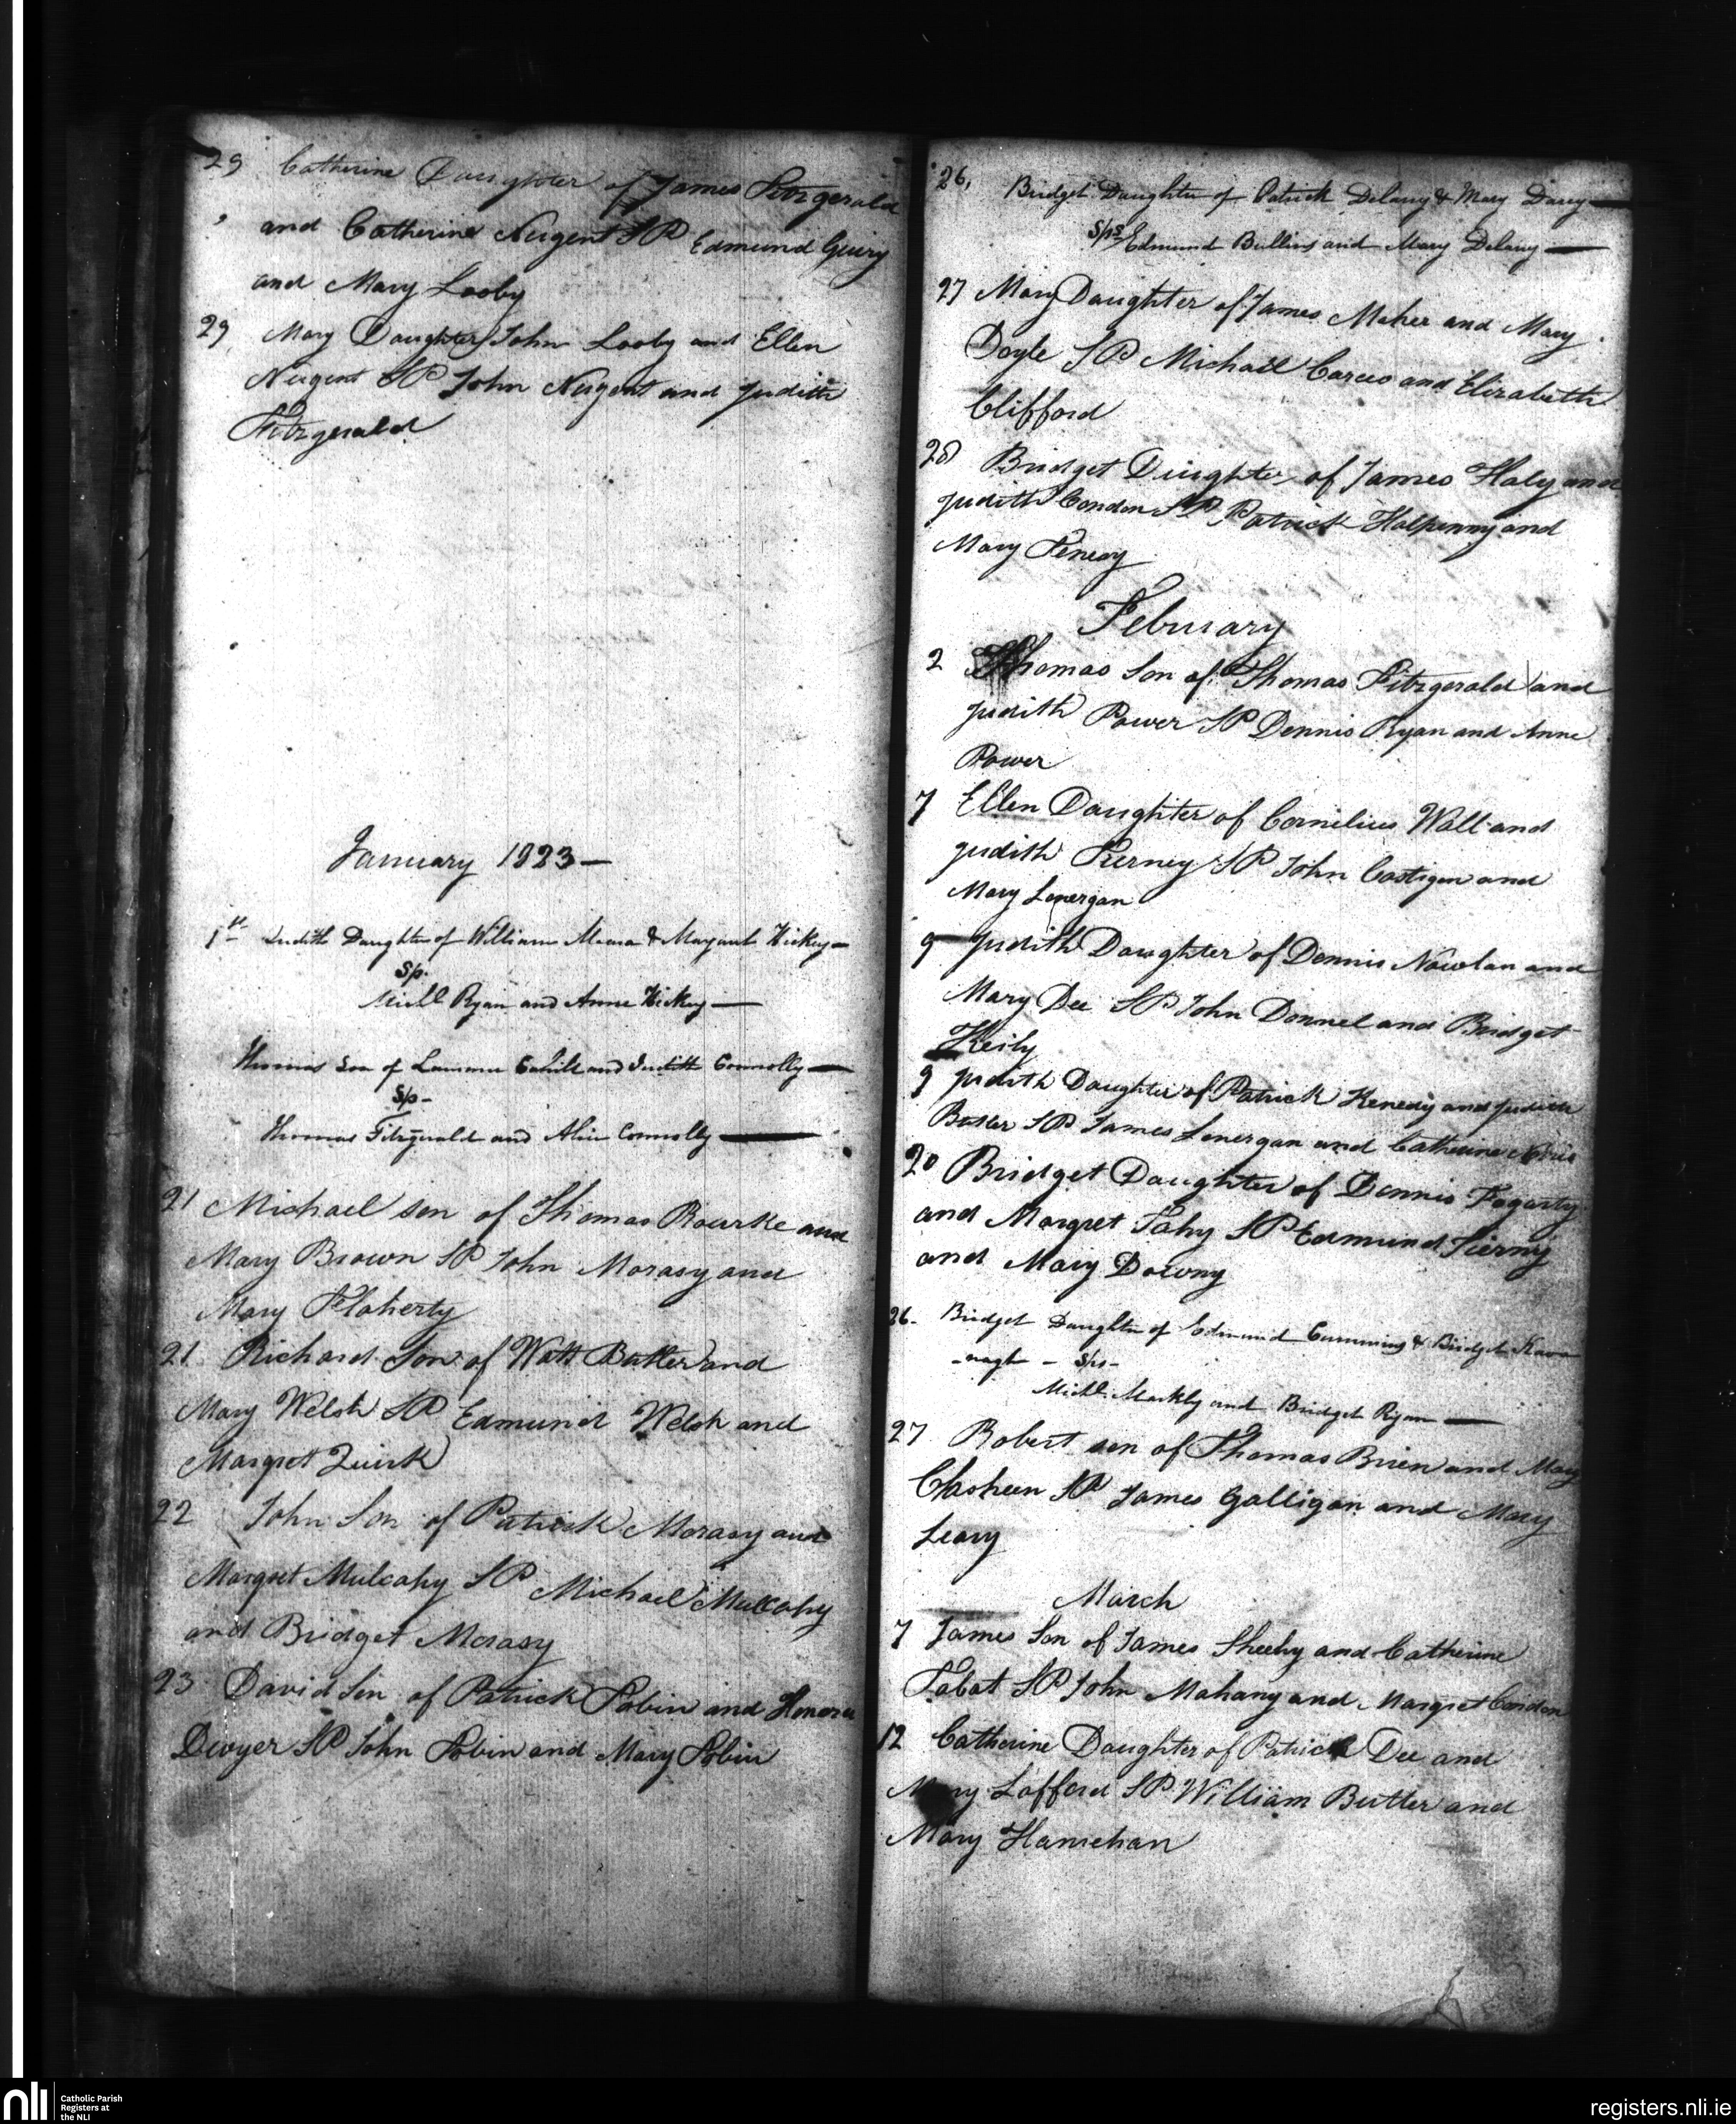 29 Catherine Daughter of James Fitzgerald
and Catherine Nugent SP Edmund Guiry
and Mary Looby
29 Mary Daughter John Looby and Ellen
Nugent SP John Nugent and Judith
Fitzgerald
January 1823
1st Judith Daughter of William Meara & Margaret Hickey
Sp.
Michl Ryan and Anne Hickey
Thomas Son of Laurence Cahill and Judith Connolly
Sp
Thomas Fitzgerald and Alice Connolly
21 Michael son of Thomas Rourke and
Mary Brown SP John Morasy and
Mary Flaherty
21 Richard Son of Watt Butler and
Mary Welsh SP Edmund Welsh and
Margret Quirk
22 John Son of Patrick Morasy and
Margret Mulcahy SP Michael Mulcahy
and Bridget Morasy
23 David Son of Patrick Tobin and Honora
Dwyer SP John Tobin and Mary Tobin
26, Bridget Daughter of Patrick Delany & Mary Darcy
Sps Edmund Bullins and Mary Delany
27 Mary Daughter of James Meher and Mary
Doyle SP Michael Carew and Elizabeth
Clifford
28 Bridget Daughter of James Haly and
Judith Condon SP Patrick Halpenny and
Mary
February
2 Thomas Son of Thomas Fitzgerald and
Judith Power SP Dennis Ryan and Anne
Power
7 Ellen Daughter of Cornelius Wall and
Judith Tierney SP John Costigan and
Mary Lonergan
9 Judith Daughter of Dennis Nowlan and
Mary Dee SP John Donnel and Bridget
Keily
9 Judith Daughter of Patrick Kenedy and Judith
Butler SP James Lonergan and Catherine
20 Bridget Daughter of Dennis Fogarty
and Margret Fahy SP Edmund Tierny
and Mary Downy
26. Bridget Daughter of Edmund Cumming & Bridget Kava
-nagh - Sps-
Michl. Markly and Bridget Ryan
27 Robert son of Thomas Brien and Mary
Clasheen SP James Galligan and Mary
Leary
March
7 James Son of James Sheehy and Catherine
Tobat SP John Mahany and Margret Condon
12 Catherine Daughter of Patrick Dee and
Mary Lafford SP William Butler and
Mary Hanrehan
nli
Catholic Parish
Registers at
the NLI
registers.nli.ie